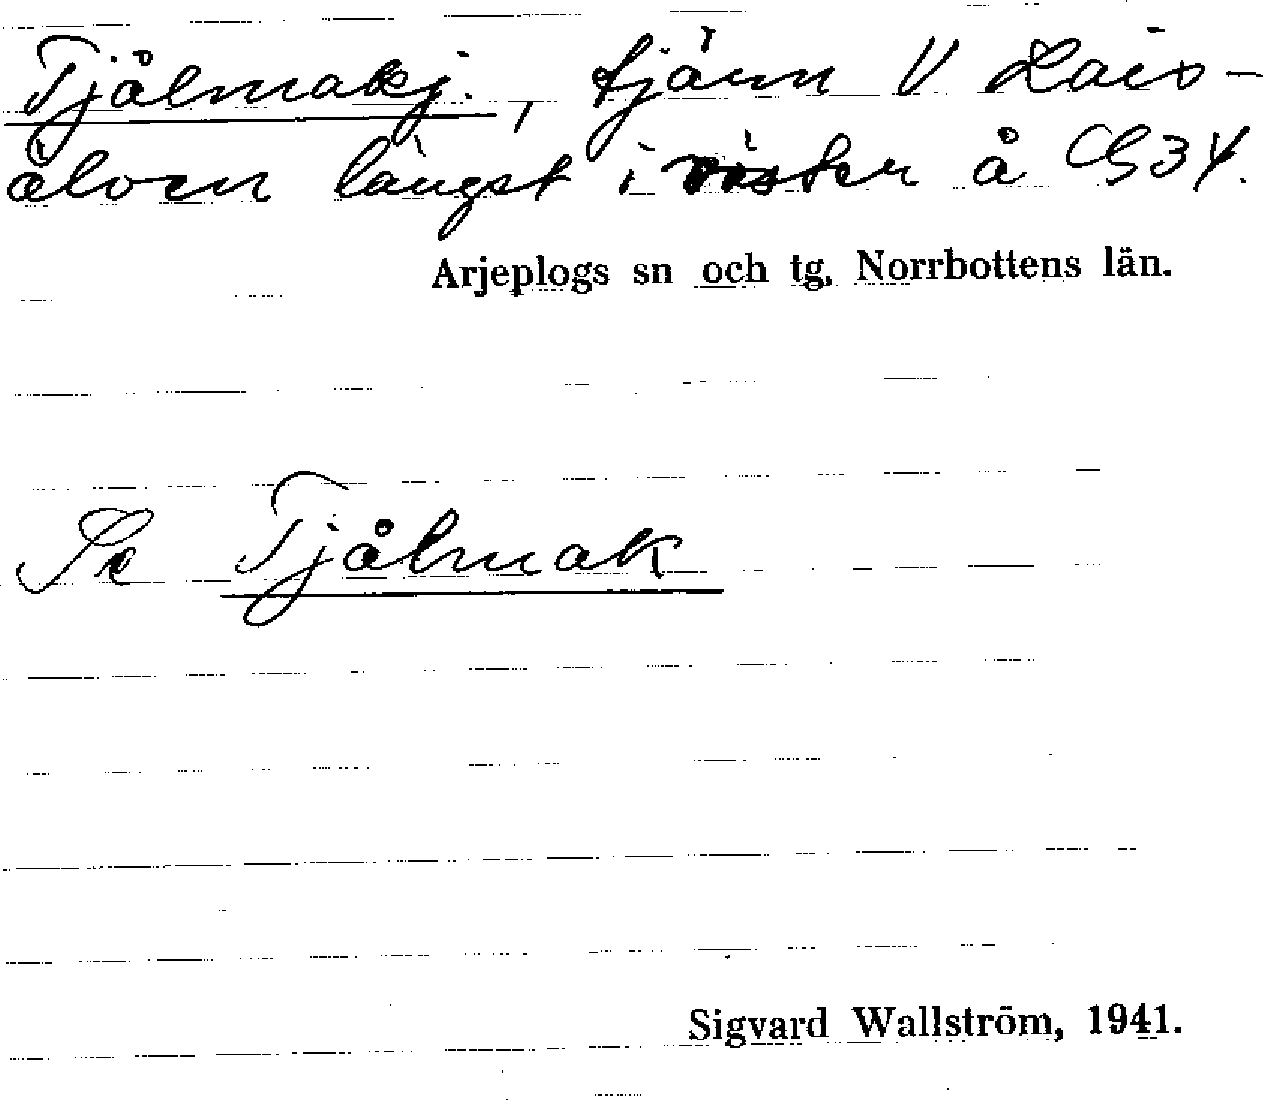 Tjålmakj., tjärn V Lais-
älven längst i väster å G34.
Arjeplogs sn och tg. Norrbottens län.
Se Tjålmak
Sigvard Wallström, 1941.